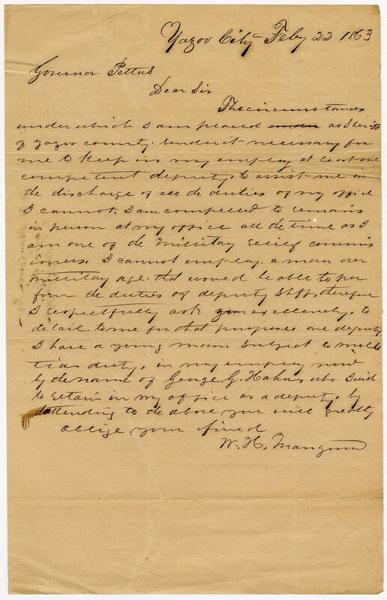 Yazoo City Feby 22 1863
Governor Pettus
Dear Sir
The circumstances
under which I am placed as Sheriff
of Yazoo county renders it necessary for
me to keep in my employ at least one
competent deputy to assist me in
the discharge of all the duties of my office
I cannot, I am compelled to remain
in person at my office all the time as I
am one of the Military relief commis
sioners I cannot employ a man over
military age that would be able to per
form the duties of deputy Shff, therefore
I respectfully ask your excellency, to
detail to me for that purpose one deputy
I have a young man subject to mili
tia duty, in my employ now
by the name of George G. Hahn, who I wish
to retain in my office as a deputy, by
attending to the above you will greatly
oblige your friend
W. H. Mangum